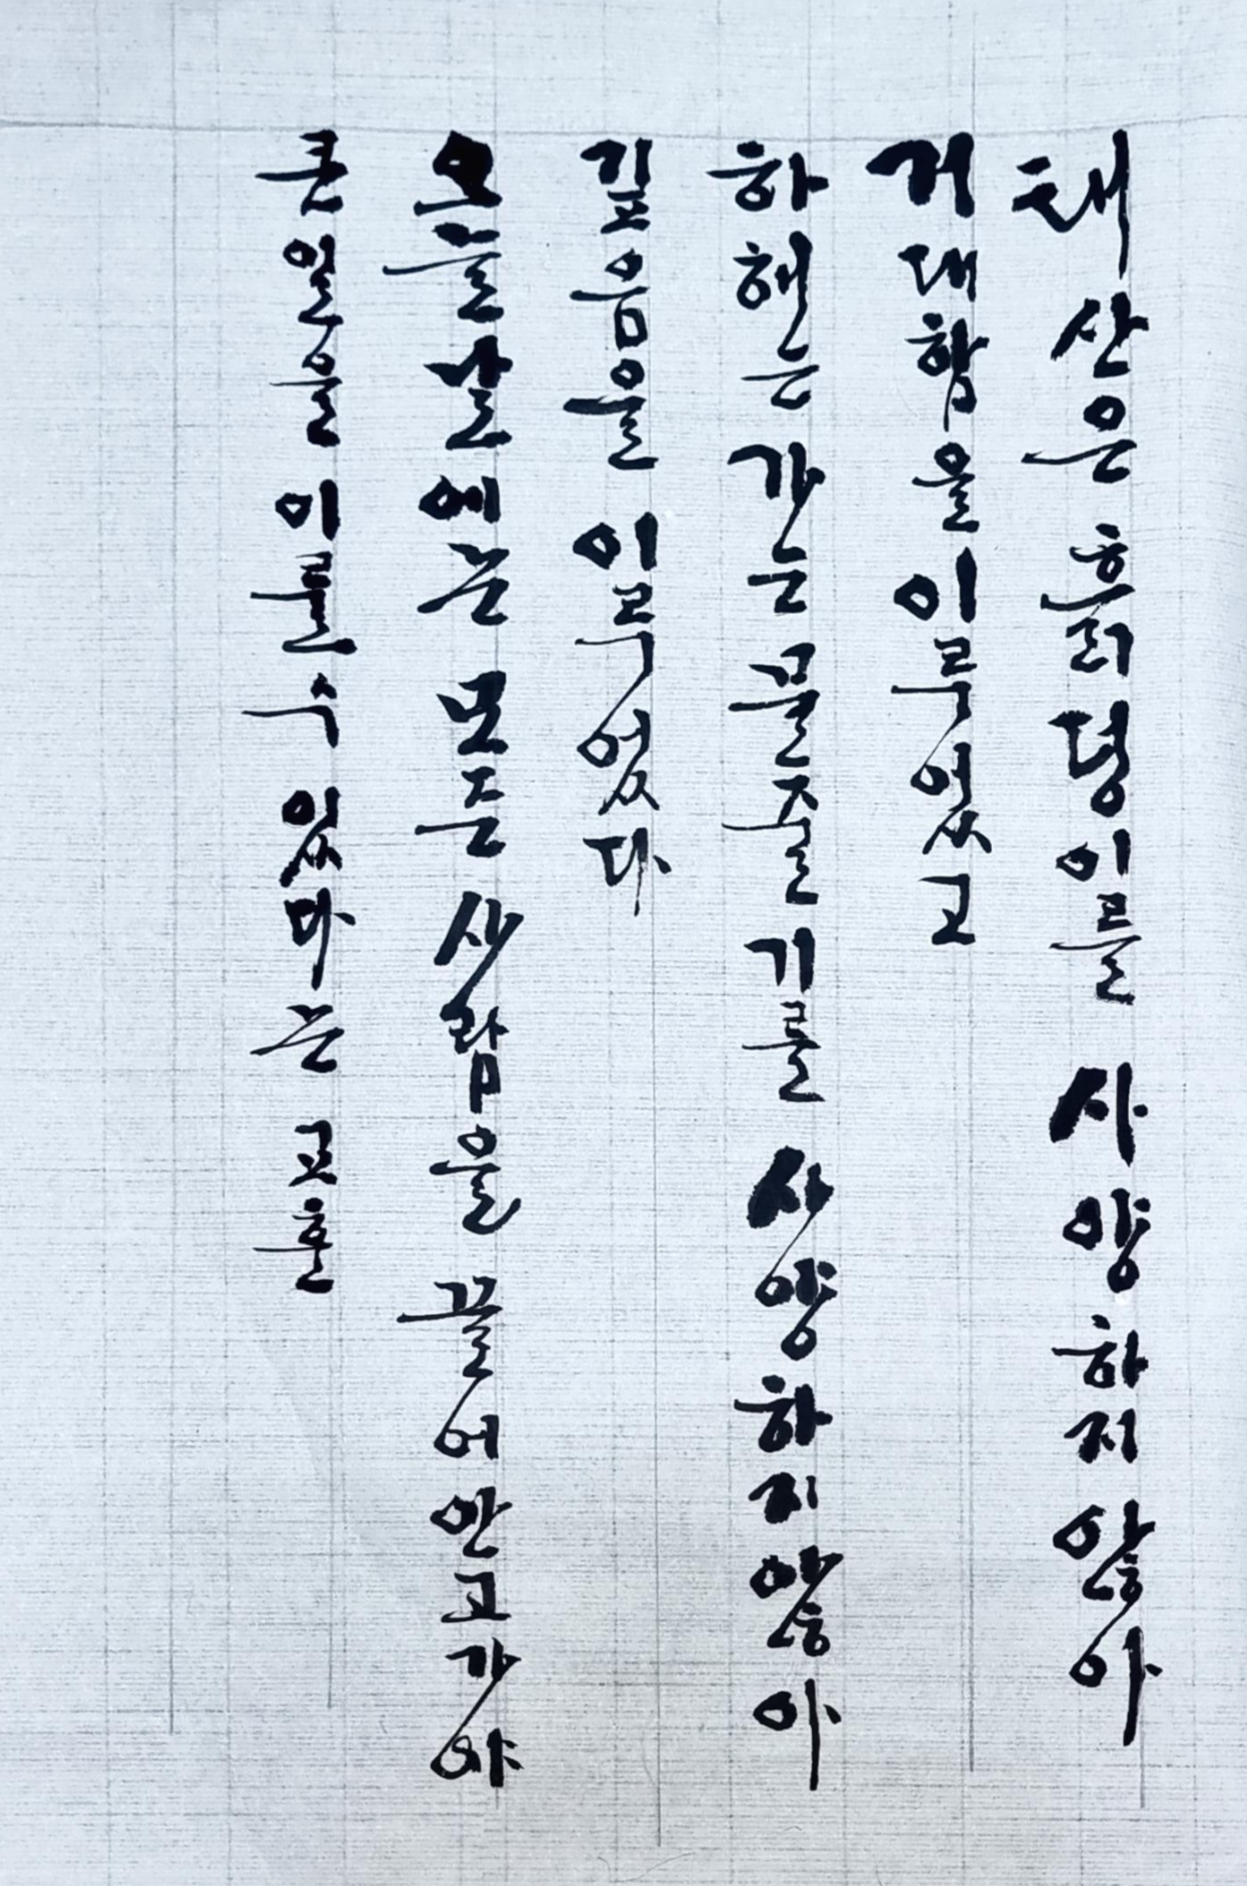 태산은 흙덩이를 사양하지 않아
거대함을 이루었고
하해는 가는 물줄기를 사양하지 않아
깊음을 이루었다
오늘날에는 모든 사람을 끌어 안고가야
큰 일을 이룰 수 있다는 교훈